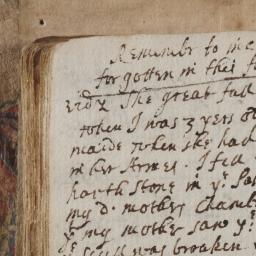 Remembr to me
forgotten in this f
The great fall
when I was 3 yers o
maide when she had
in her Armes. I fell
harth stone in yᵉ
my d. mothers chamb
yᵉ my mother saw yᵉ
was broaken